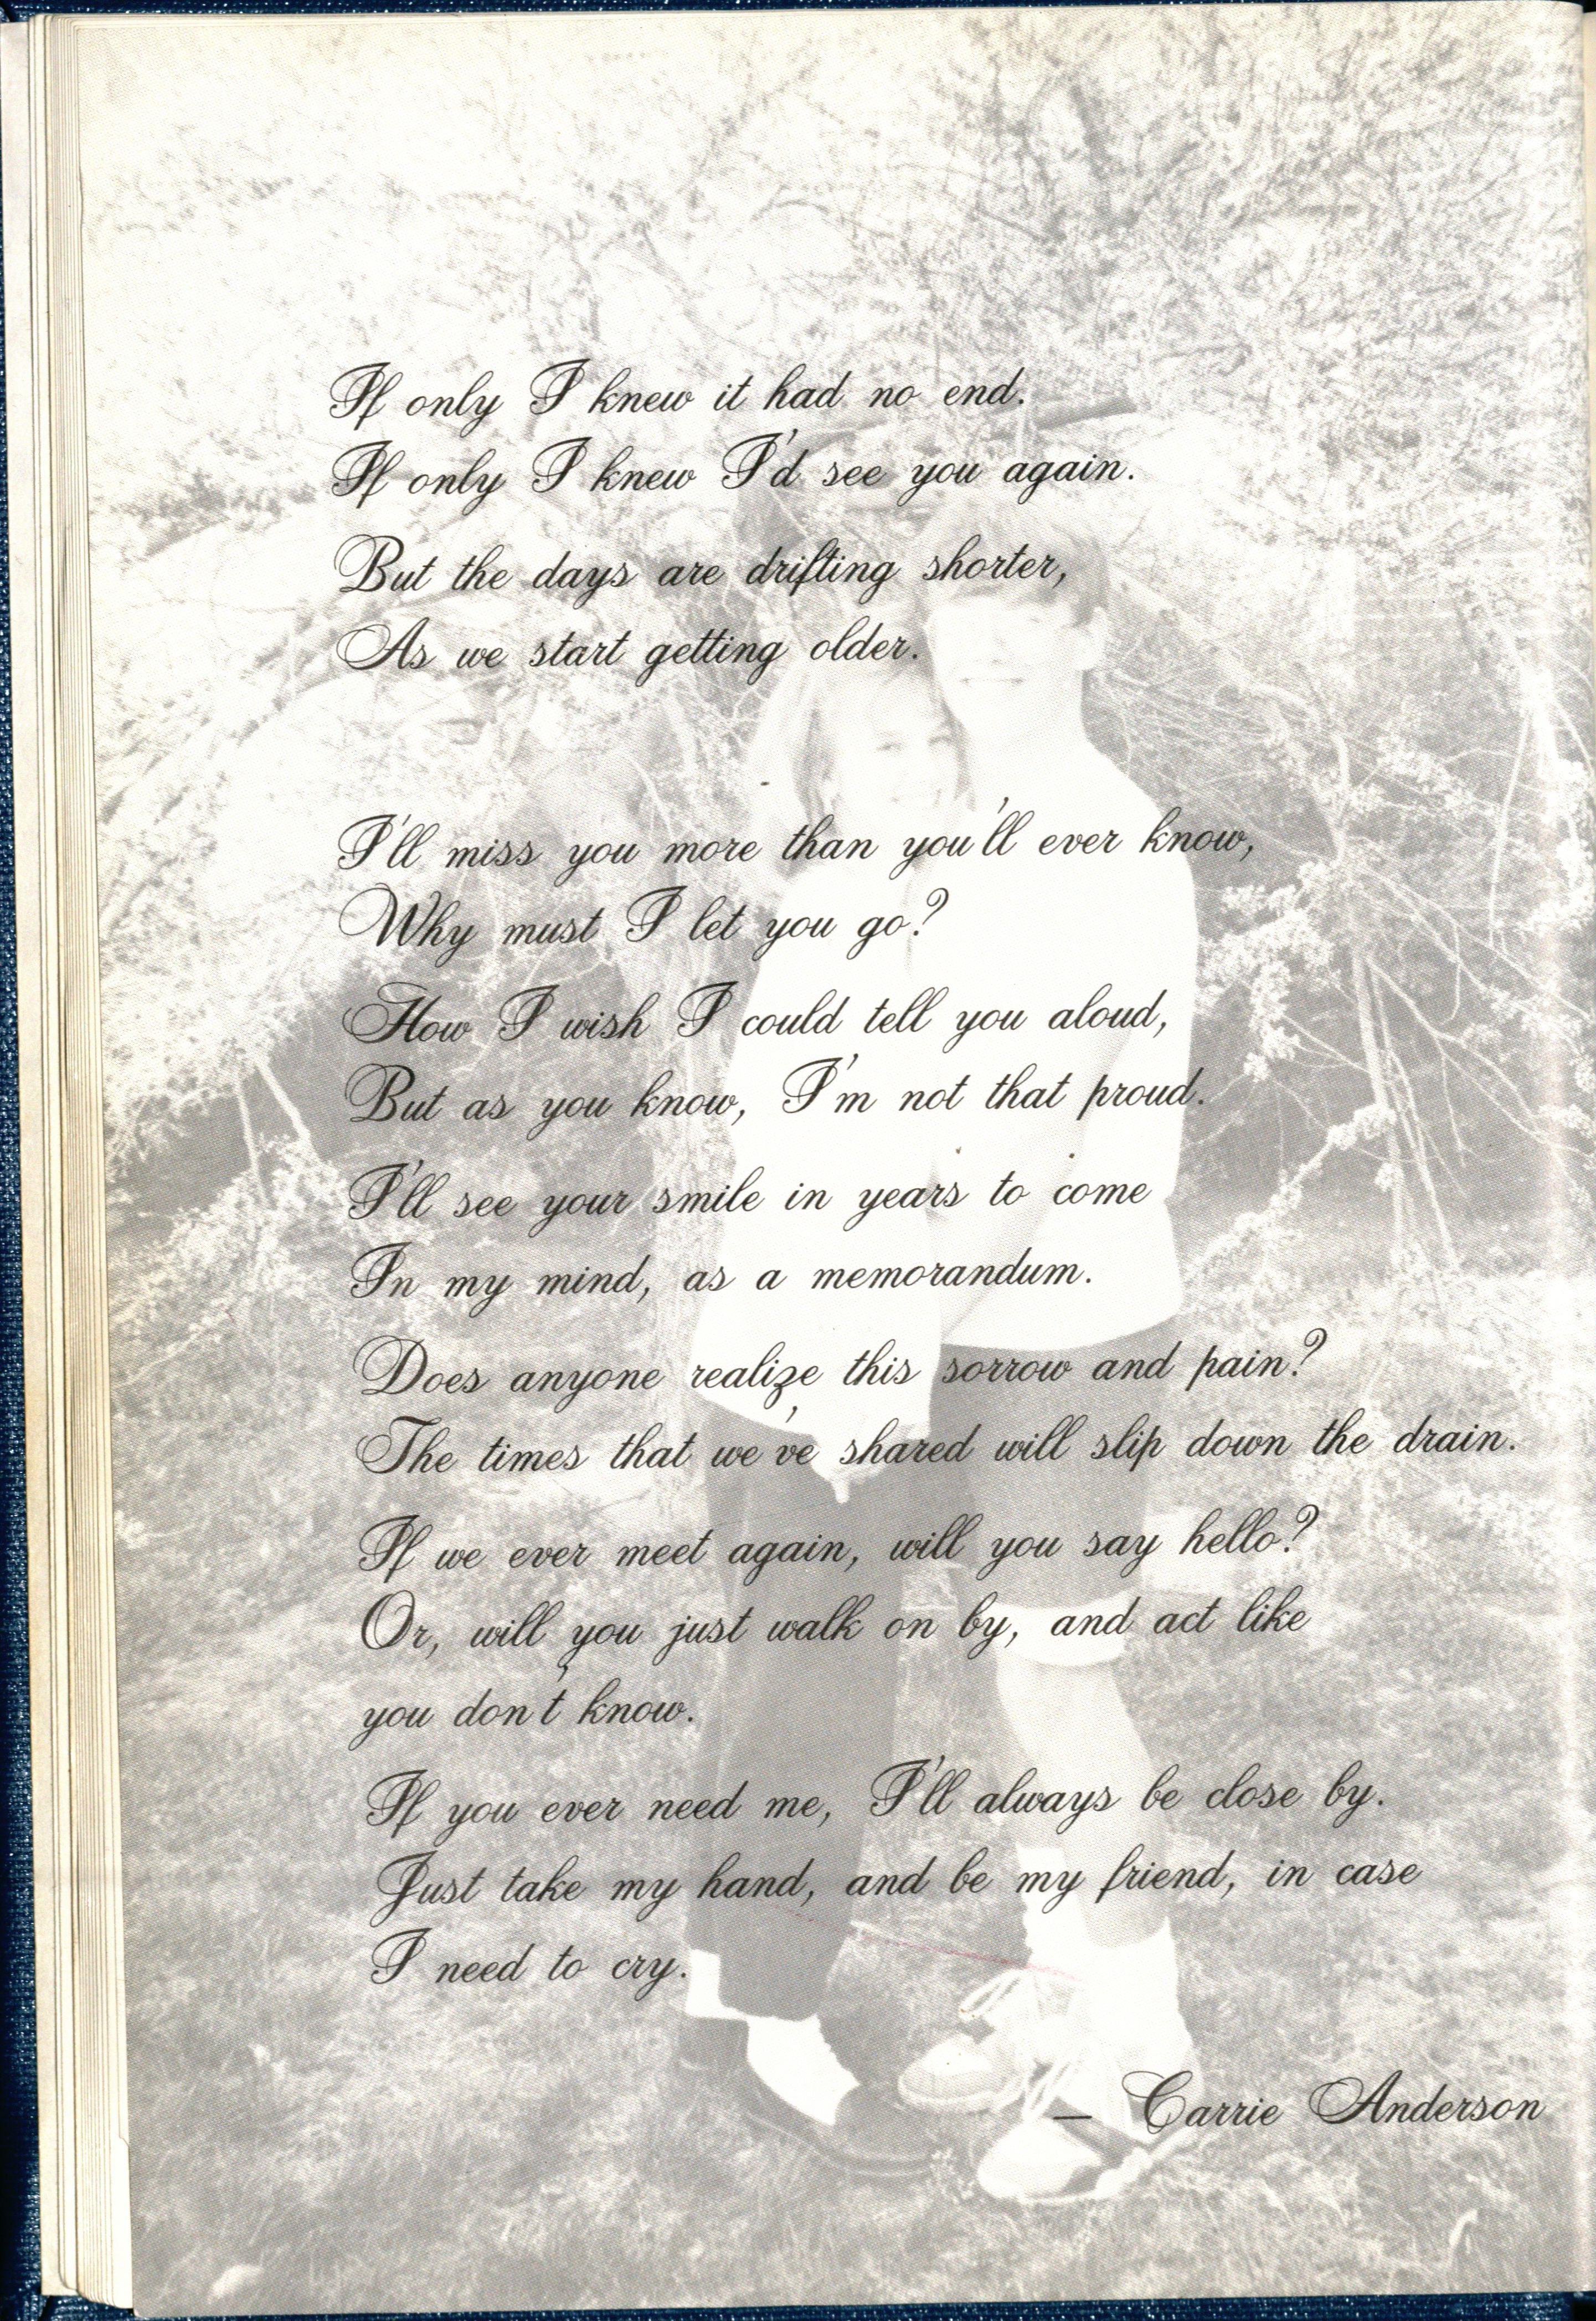 If only I knew it had no end.
If only I knew I'd see you again.
But the days are drifting shorter,
As we start getting older.
I'll miss you more than you'll ever know,
Why must I let you go?
How I wish I could tell you aloud,
But as you know, I'm not that proud.
I'll see your smile in years to come
In my mind, as a memorandum.
Does anyone realize this sorrow and pain?
The times that we've shared will slip down the drain.
If we ever meet again, will you say hello?
Or, will you just walk on by, and act like
you don't know.
If you ever need me, I'll always be close by.
Just take my hand, and be my friend, in case
I need to cry.
— Carrie Anderson